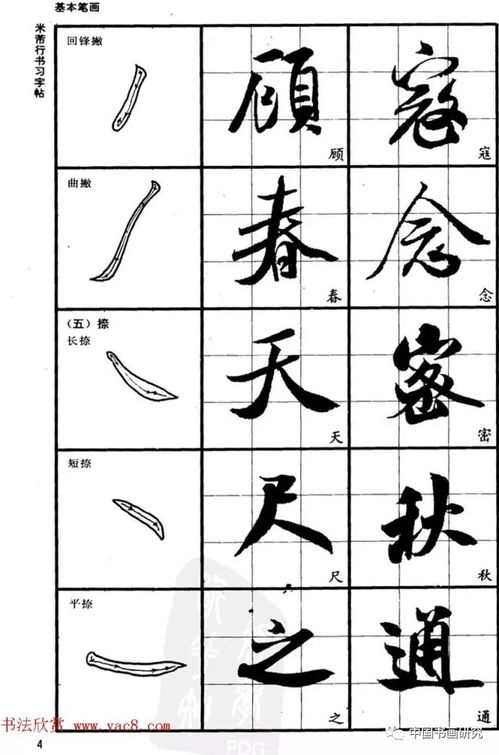 基本笔画
米芾行书习字帖
回锋撇
顾
顾
寇
寇
曲撇
春
春
念
念
(五)捺
长捺
天
天
密
密
短捺
尺
尺
秋
秋
平捺
之
之
通
通
书法欣赏 www.yac8.com
中国书画研究
4
PDG